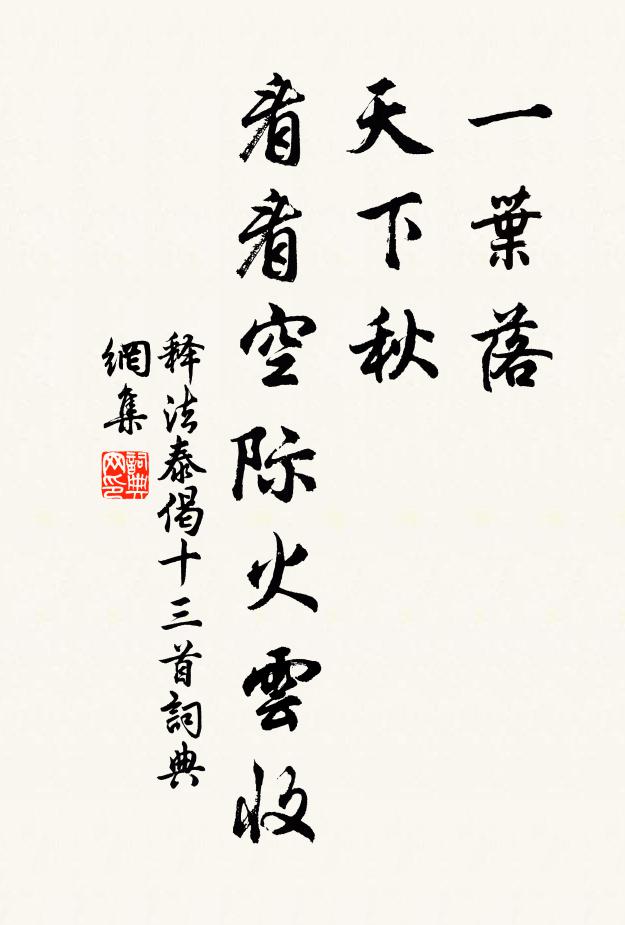 一葉落
天下秋
看看空际火雲收
释法泰偈十三首詞典
網集
詞典
网印